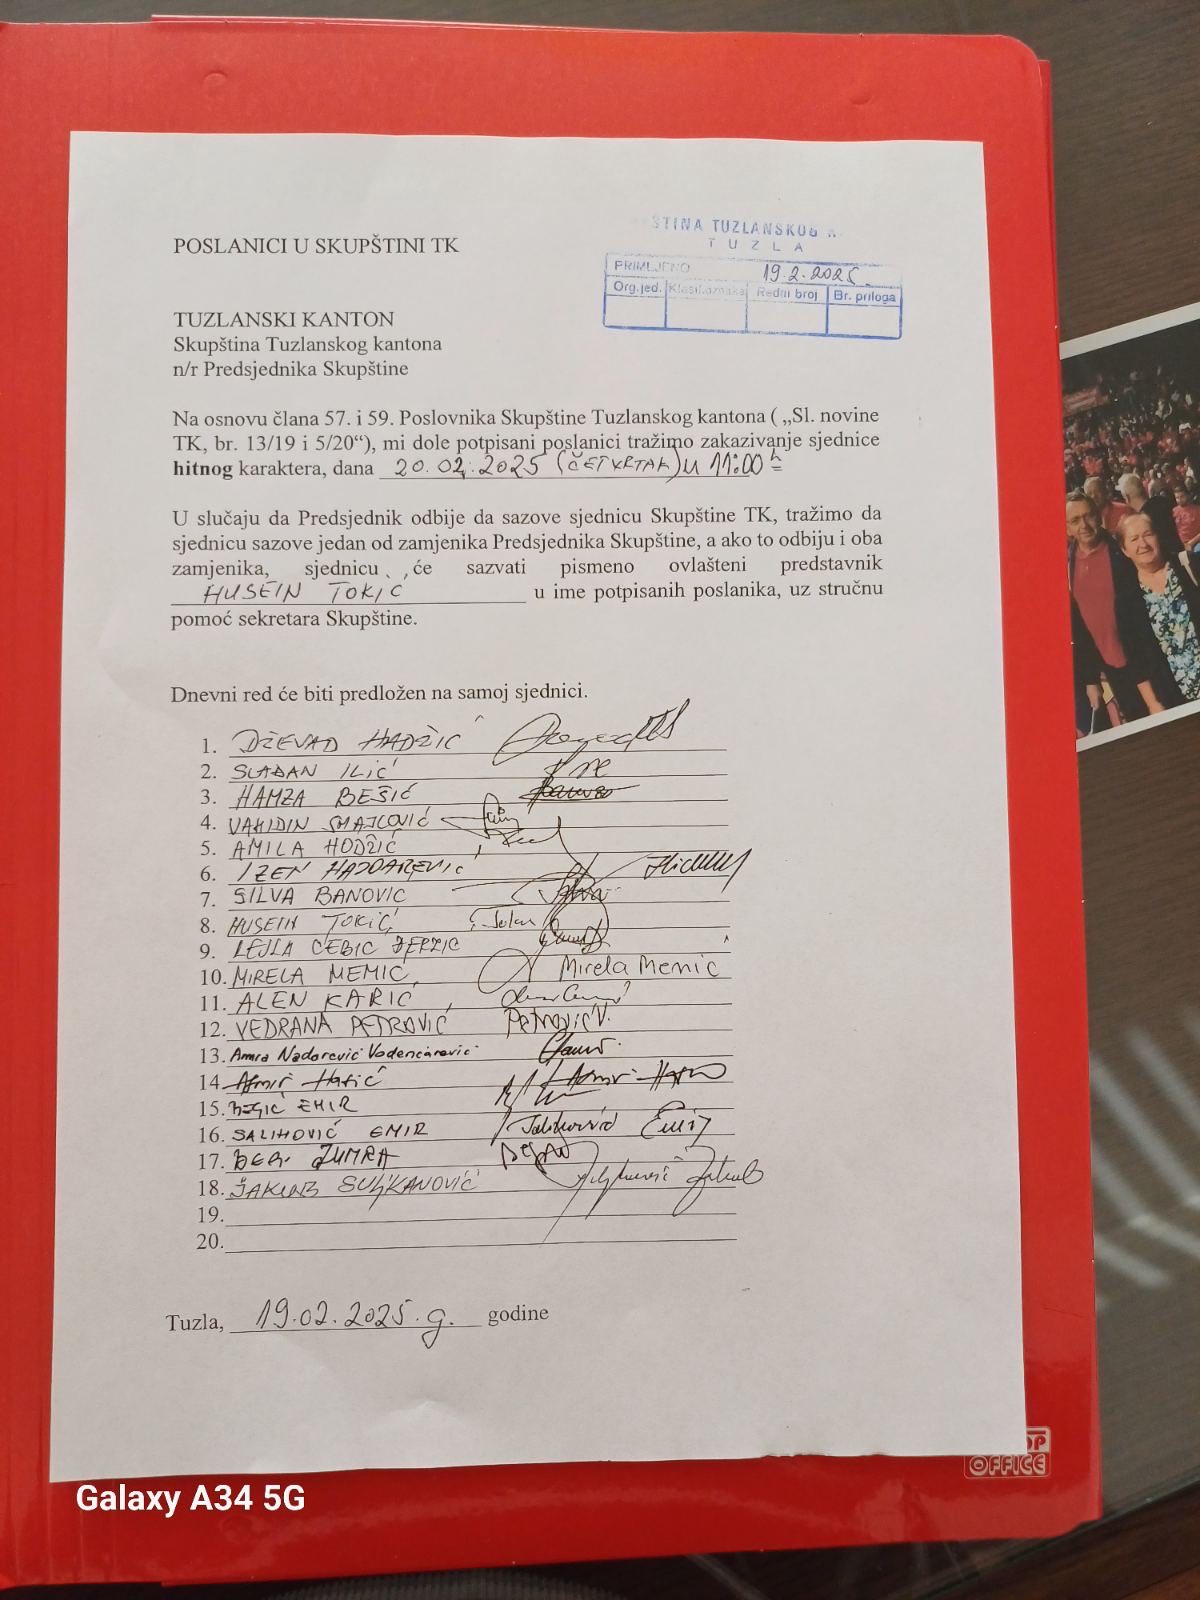 POSLANICI U SKUPŠTINI TK
ŠTINA TUZLANSKOG K
TUZLA
PRIMLJENO 19.2.2025.
Org.jed. Klasif.oznaka Redni broj Br. priloga
TUZLANSKI KANTON
Skupština Tuzlanskog kantona
n/r Predsjednika Skupštine
Na osnovu člana 57. i 59. Poslovnika Skupštine Tuzlanskog kantona ( „Sl. novine
TK, br. 13/19 i 5/20“), mi dole potpisani poslanici tražimo zakazivanje sjednice
hitnog karaktera, dana 20.02.2025 (ČETVRTAK) u 11:00 h
U slučaju da Predsjednik odbije da sazove sjednicu Skupštine TK, tražimo da
sjednicu sazove jedan od zamjenika Predsjednika Skupštine, a ako to odbiju i oba
zamjenika, sjednicu će sazvati pismeno ovlašteni predstavnik
HUSEIN TOKIĆ u ime potpisanih poslanika, uz stručnu
pomoć sekretara Skupštine.
Dnevni red će biti predložen na samoj sjednici.
1. DŽEVAD HADŽIĆ
2. SLAĐAN ILIĆ
3. HAMZA BEŠIĆ
4. VAHIDIN SMAJLOVIĆ
5. AMILA HODŽIĆ
6. IZEN HAJDAREVIĆ
7. SILVA BANOVIC
8. HUSEIN TOKIĆ
9. LEJLA ČEBIĆ
10. MIRELA MEMIĆ Mirela Memić
11. ALEN KARIĆ
12. VEDRANA PETROVIĆ Petrović V.
13. Amra Nadarević Vodenčarević
14. Admir Hafić
15. BEGIĆ EMIR
16. SALIHOVIĆ EMIR Salihović Emir
17. ZUMRA
18. JAKUB SULJKANOVIĆ
19.
20.
Tuzla, 19.02.2025.g. godine
TOP
OFFICE
Galaxy A34 5G